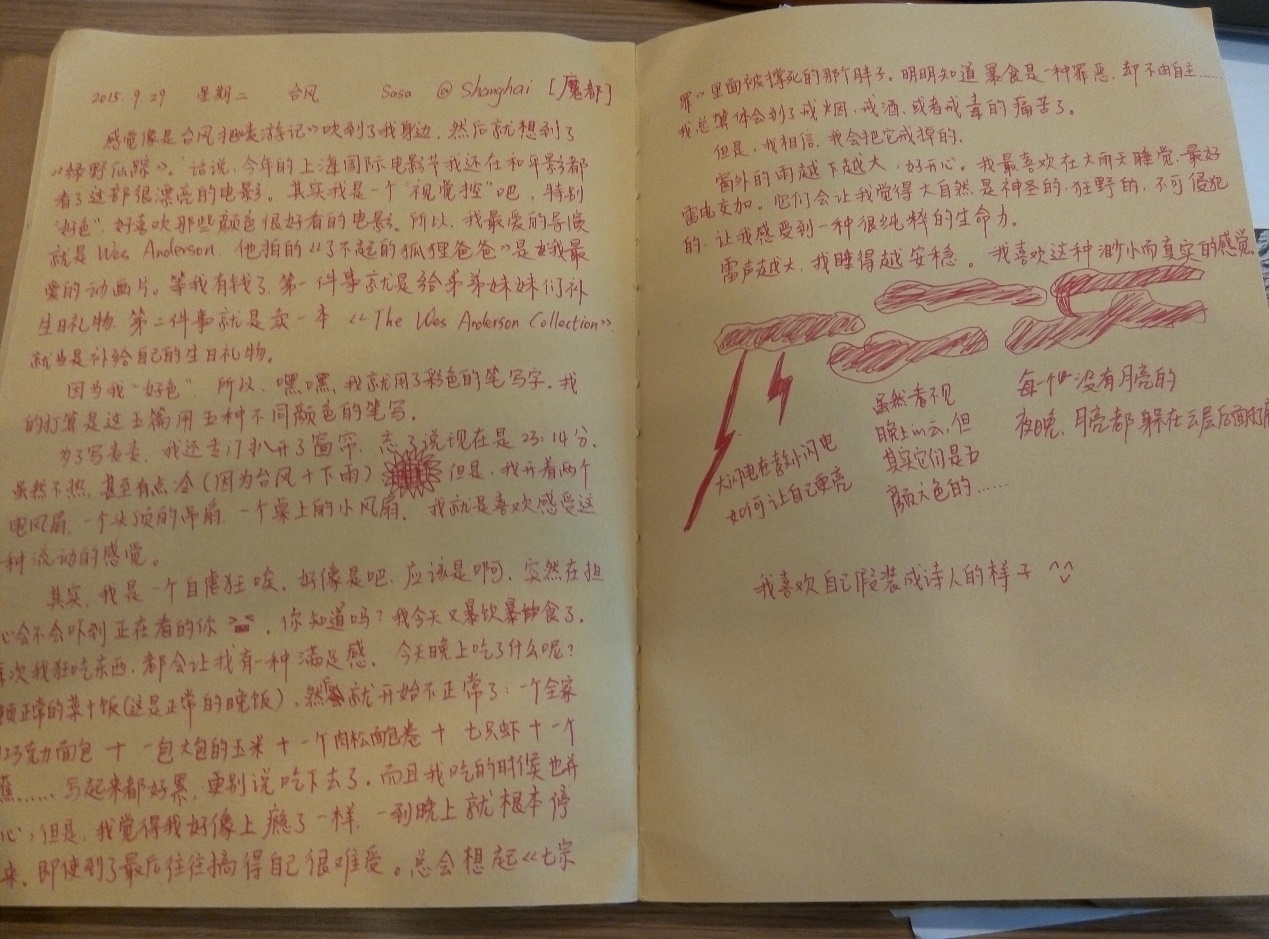 2015.9.29 星期二 台风 Sasa @Shanghai [魔都]
感觉像是台风把《 游记》吹到了我身边,然后就想到了
《绿野仙踪》。话说,今年的上海国际电影节我还在和平影都
看了这部很漂亮的电影。其实我是一个"视觉控"吧,特别
"好色",好喜欢那些颜色很好看的电影。所以,我最爱的导演
就是Wes Anderson,他拍的《了不起的狐狸爸爸》是我最
爱的动画片。等我有钱了,第一件事就是给弟弟妹妹们补
生日礼物,第二件事就是卖一本《The Wes Anderson Collection》,
就当是补给自己的生日礼物。
因为我"好色",所以,嘿嘿,我就用了彩色的笔写字。我
的打算是这五篇用五种不同颜色的笔写。
为了写 ,我还专门扒开了窗帘,忘了说现在是23:14分,
虽然不热,甚至有点冷(因为台风+下雨) 但是,我开着两个
电风扇,一个头顶的吊扇,一个桌上的小风扇,我就是喜欢感受这
种流动的感觉。
其实,我是一个自虐狂唉,好像是吧,应该是啊,突然在担
心会不会吓到正在看的你 ,你知道吗?我今天又暴饮暴食了。
每次我狂吃东西,都会让我有一种满足感,今天晚上吃了什么呢?
顿正常的菜+饭(这是正常的晚饭),然后就开始不正常了:一个全家
巧克力面包 + 一包大包的玉米 + 一个肉松面包卷 + 七只虾 + 一个
蕉……写起来都好累,更别说吃下去了,而且我吃的时候也并
心,但是,我觉得我好像上瘾了一样,一到晚上就根本停
来,即使到了最后往往搞得自己很难受。总会想起《七宗
罪》里面被撑死的那个胖子,明明知道暴食是一种罪恶,却不由自主……
我总算体会到了戒烟,戒酒,或者戒毒的痛苦了。
但是,我相信,我会把它戒掉的。
窗外的雨越下越大,好开心。我最喜欢在大雨天睡觉,最好
雷电交加。它们会让我觉得大自然是神圣的,狂野的,不可侵犯
的,让我感受到一种很纯粹的生命力。
雷声越大,我睡得越安稳。我喜欢这种渺小而真实的感觉。
大闪电在教小闪电
如何让自己更亮
虽然看不见
晚上in云,但
其实它们是五
颜六色的……
每一个没有月亮的
夜晚,月亮都躲在云层后面
我喜欢自己假装成诗人的样子 ^^